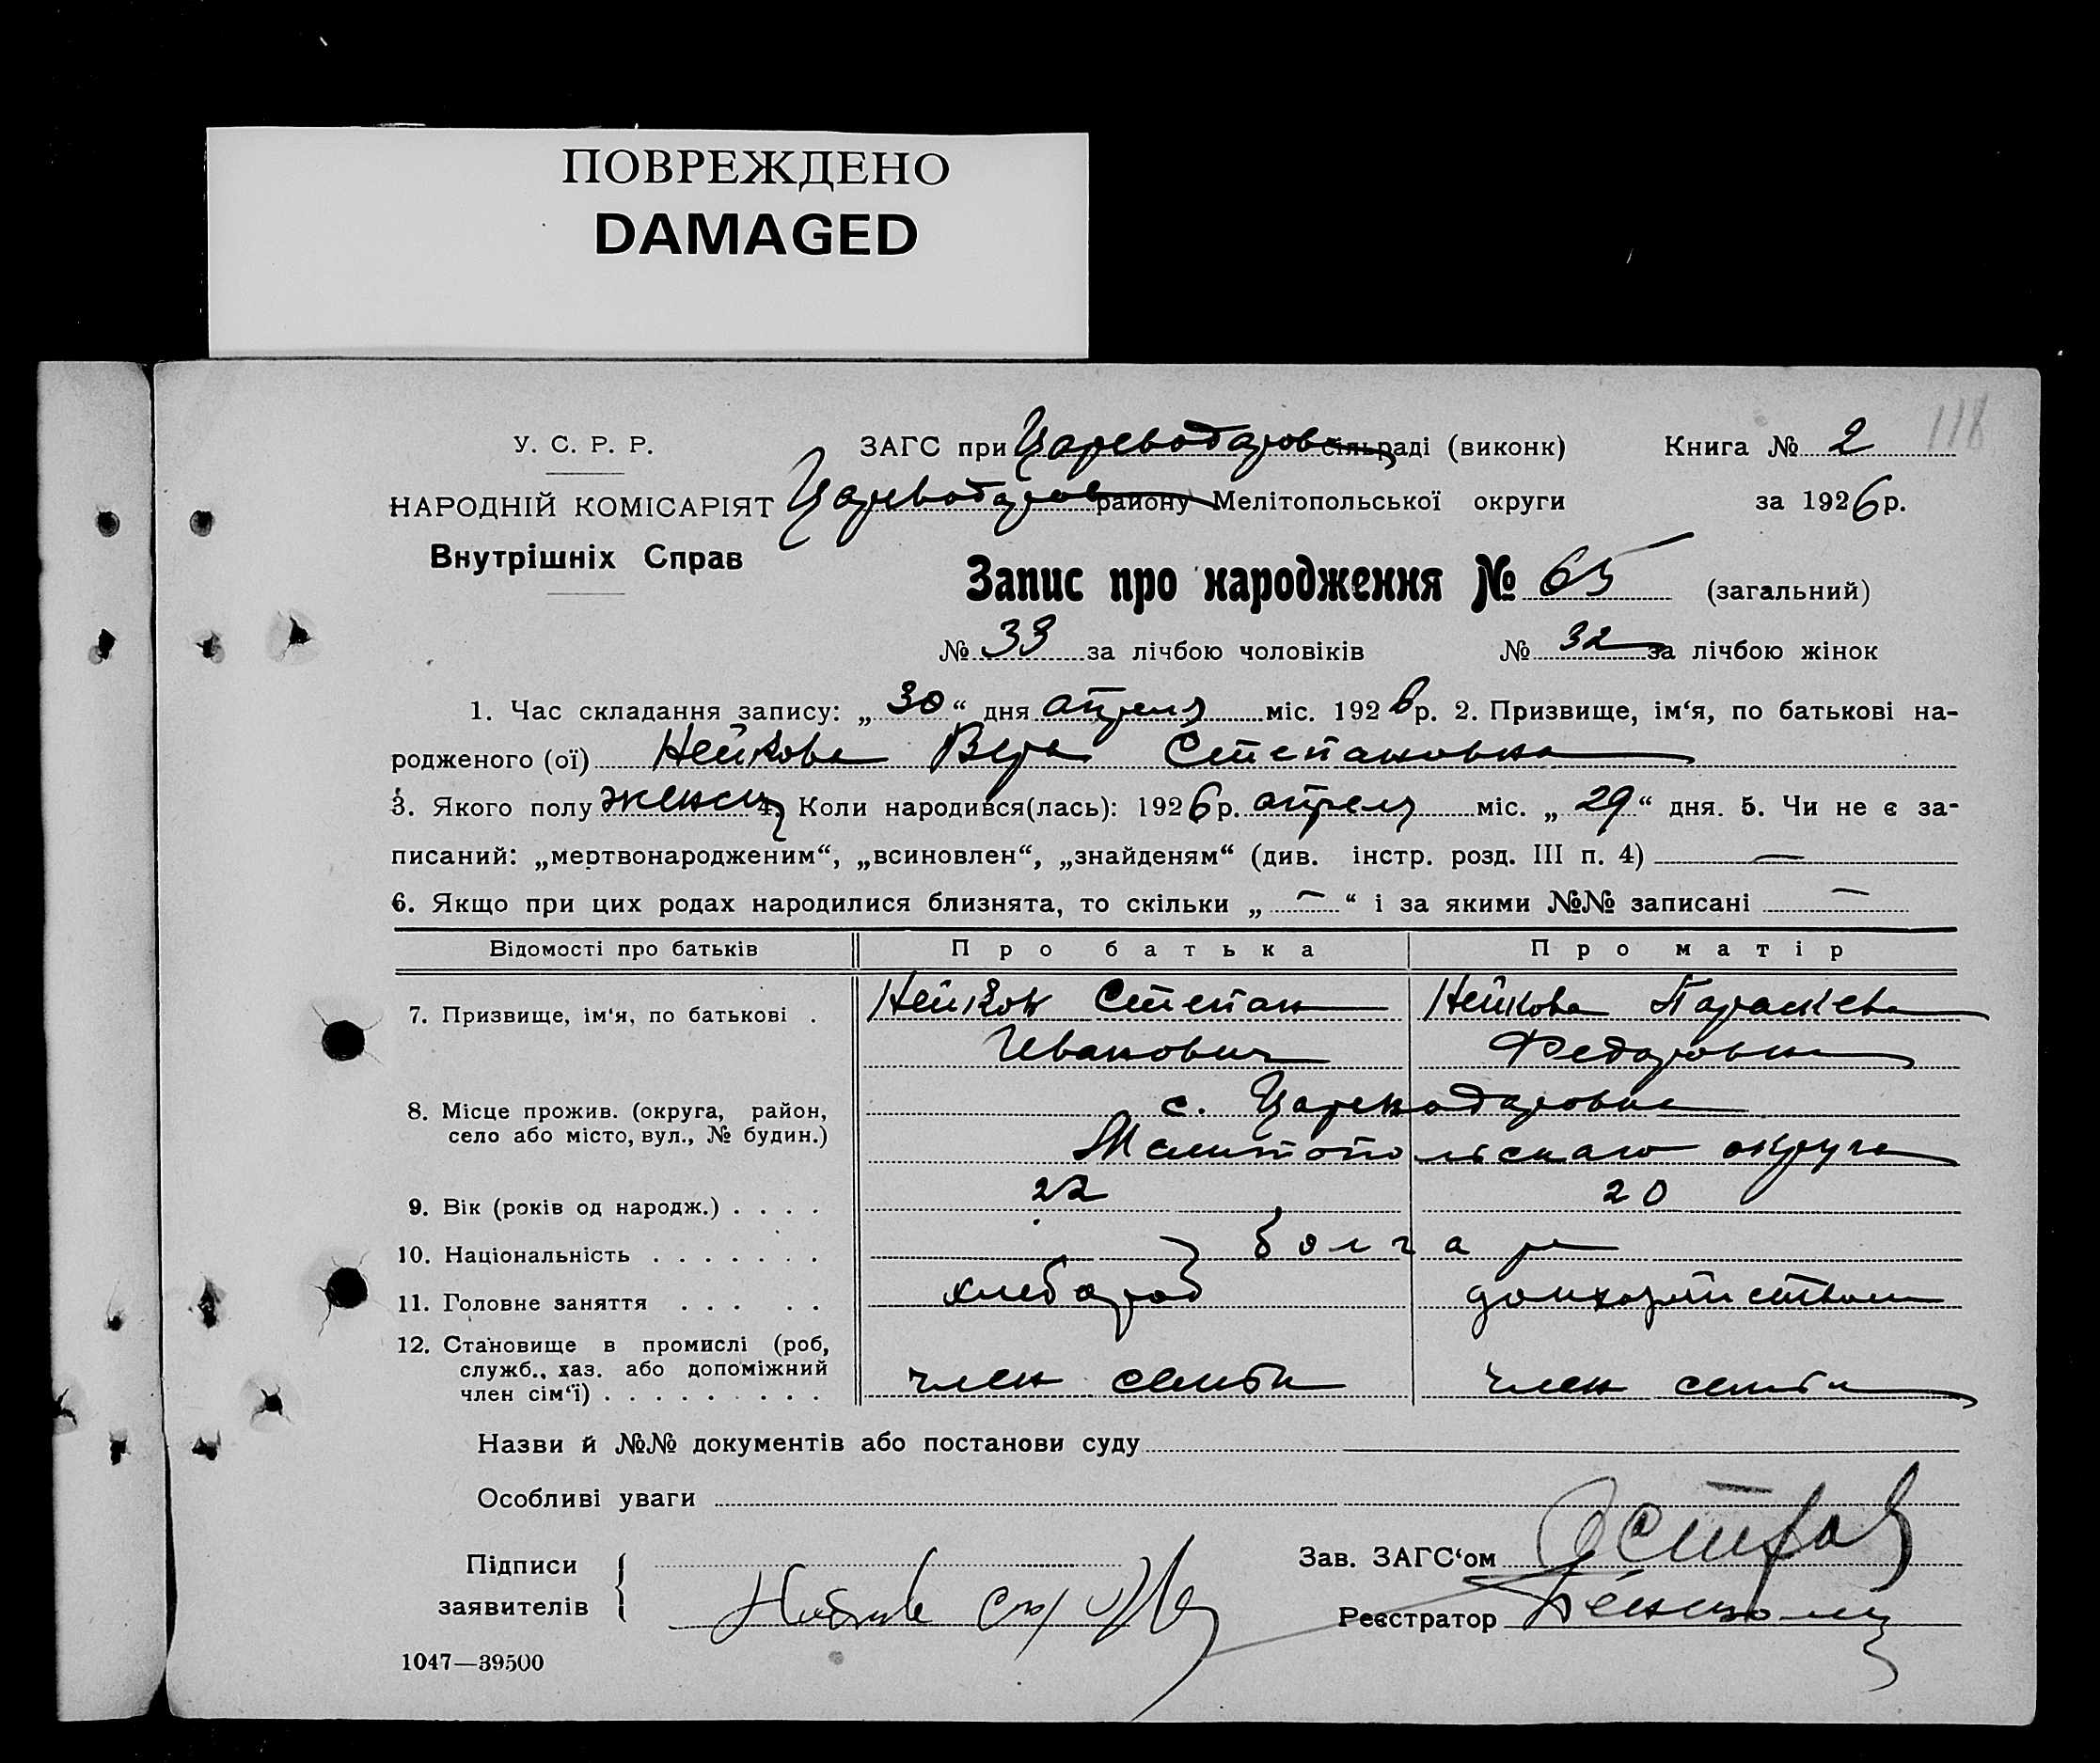 ПОВРЕЖДЕНО
DAMAGED
118
У. С. Р. Р. ЗАГС при Цареводаровсільраді (виконк) Книга № 2
НАРОДНІЙ КОМІСАРІЯТ Цареводаров району Мелітопольської округи за 1926 р.
Внутрішніх Справ
Запис про народження № 65 (загальний)
№ 33 за лічбою чоловіків № 32 за лічбою жінок
1. Час складання запису: „ 30 “ дня апреля міс. 1926 р. 2. Призвище, ім‘я, по батькові на-
родженого (ої) Нейкова Вера Степановна
3. Якого полу женск 4. Коли народився(лась): 1926 р. апреля міс. „ 29 “ дня. 5. Чи не є за-
писаний: „мертвонародженим“, „всиновлен“, „знайденям“ (див. інстр. розд. III п. 4) —
6. Якщо при цих родах народилися близнята, то скільки „ — “ і за якими №№ записані —
Відомості про батьків Про батька Про матір
7. Призвище, ім‘я, по батькові . Нейков Степан Нейкова Параскева
Иванович Федоровна
8. Місце прожив. (округа, район, с. Цареводаровка
село або місто, вул., № будин.) Мелитопольскаго округа
9. Вік (років од народж.) . . . . 22 20
10. Національність . . . . . . . болгаре
11. Головне заняття . . . . . хлебороб домхозяйством
12. Становище в промислі (роб,
служб., хаз. або допоміжний
член сім‘ї) . . . . . . . . . член семьи член семьи
Назви й №№ документів або постанови суду
Особливі уваги
Підписи Зав. ЗАГС‘ом
заявителів Реєстратор
1047—39500